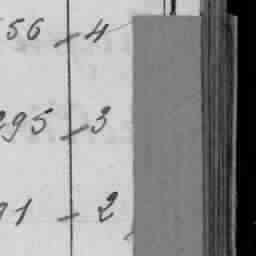 56 - 4
295 - 3
91 - 2